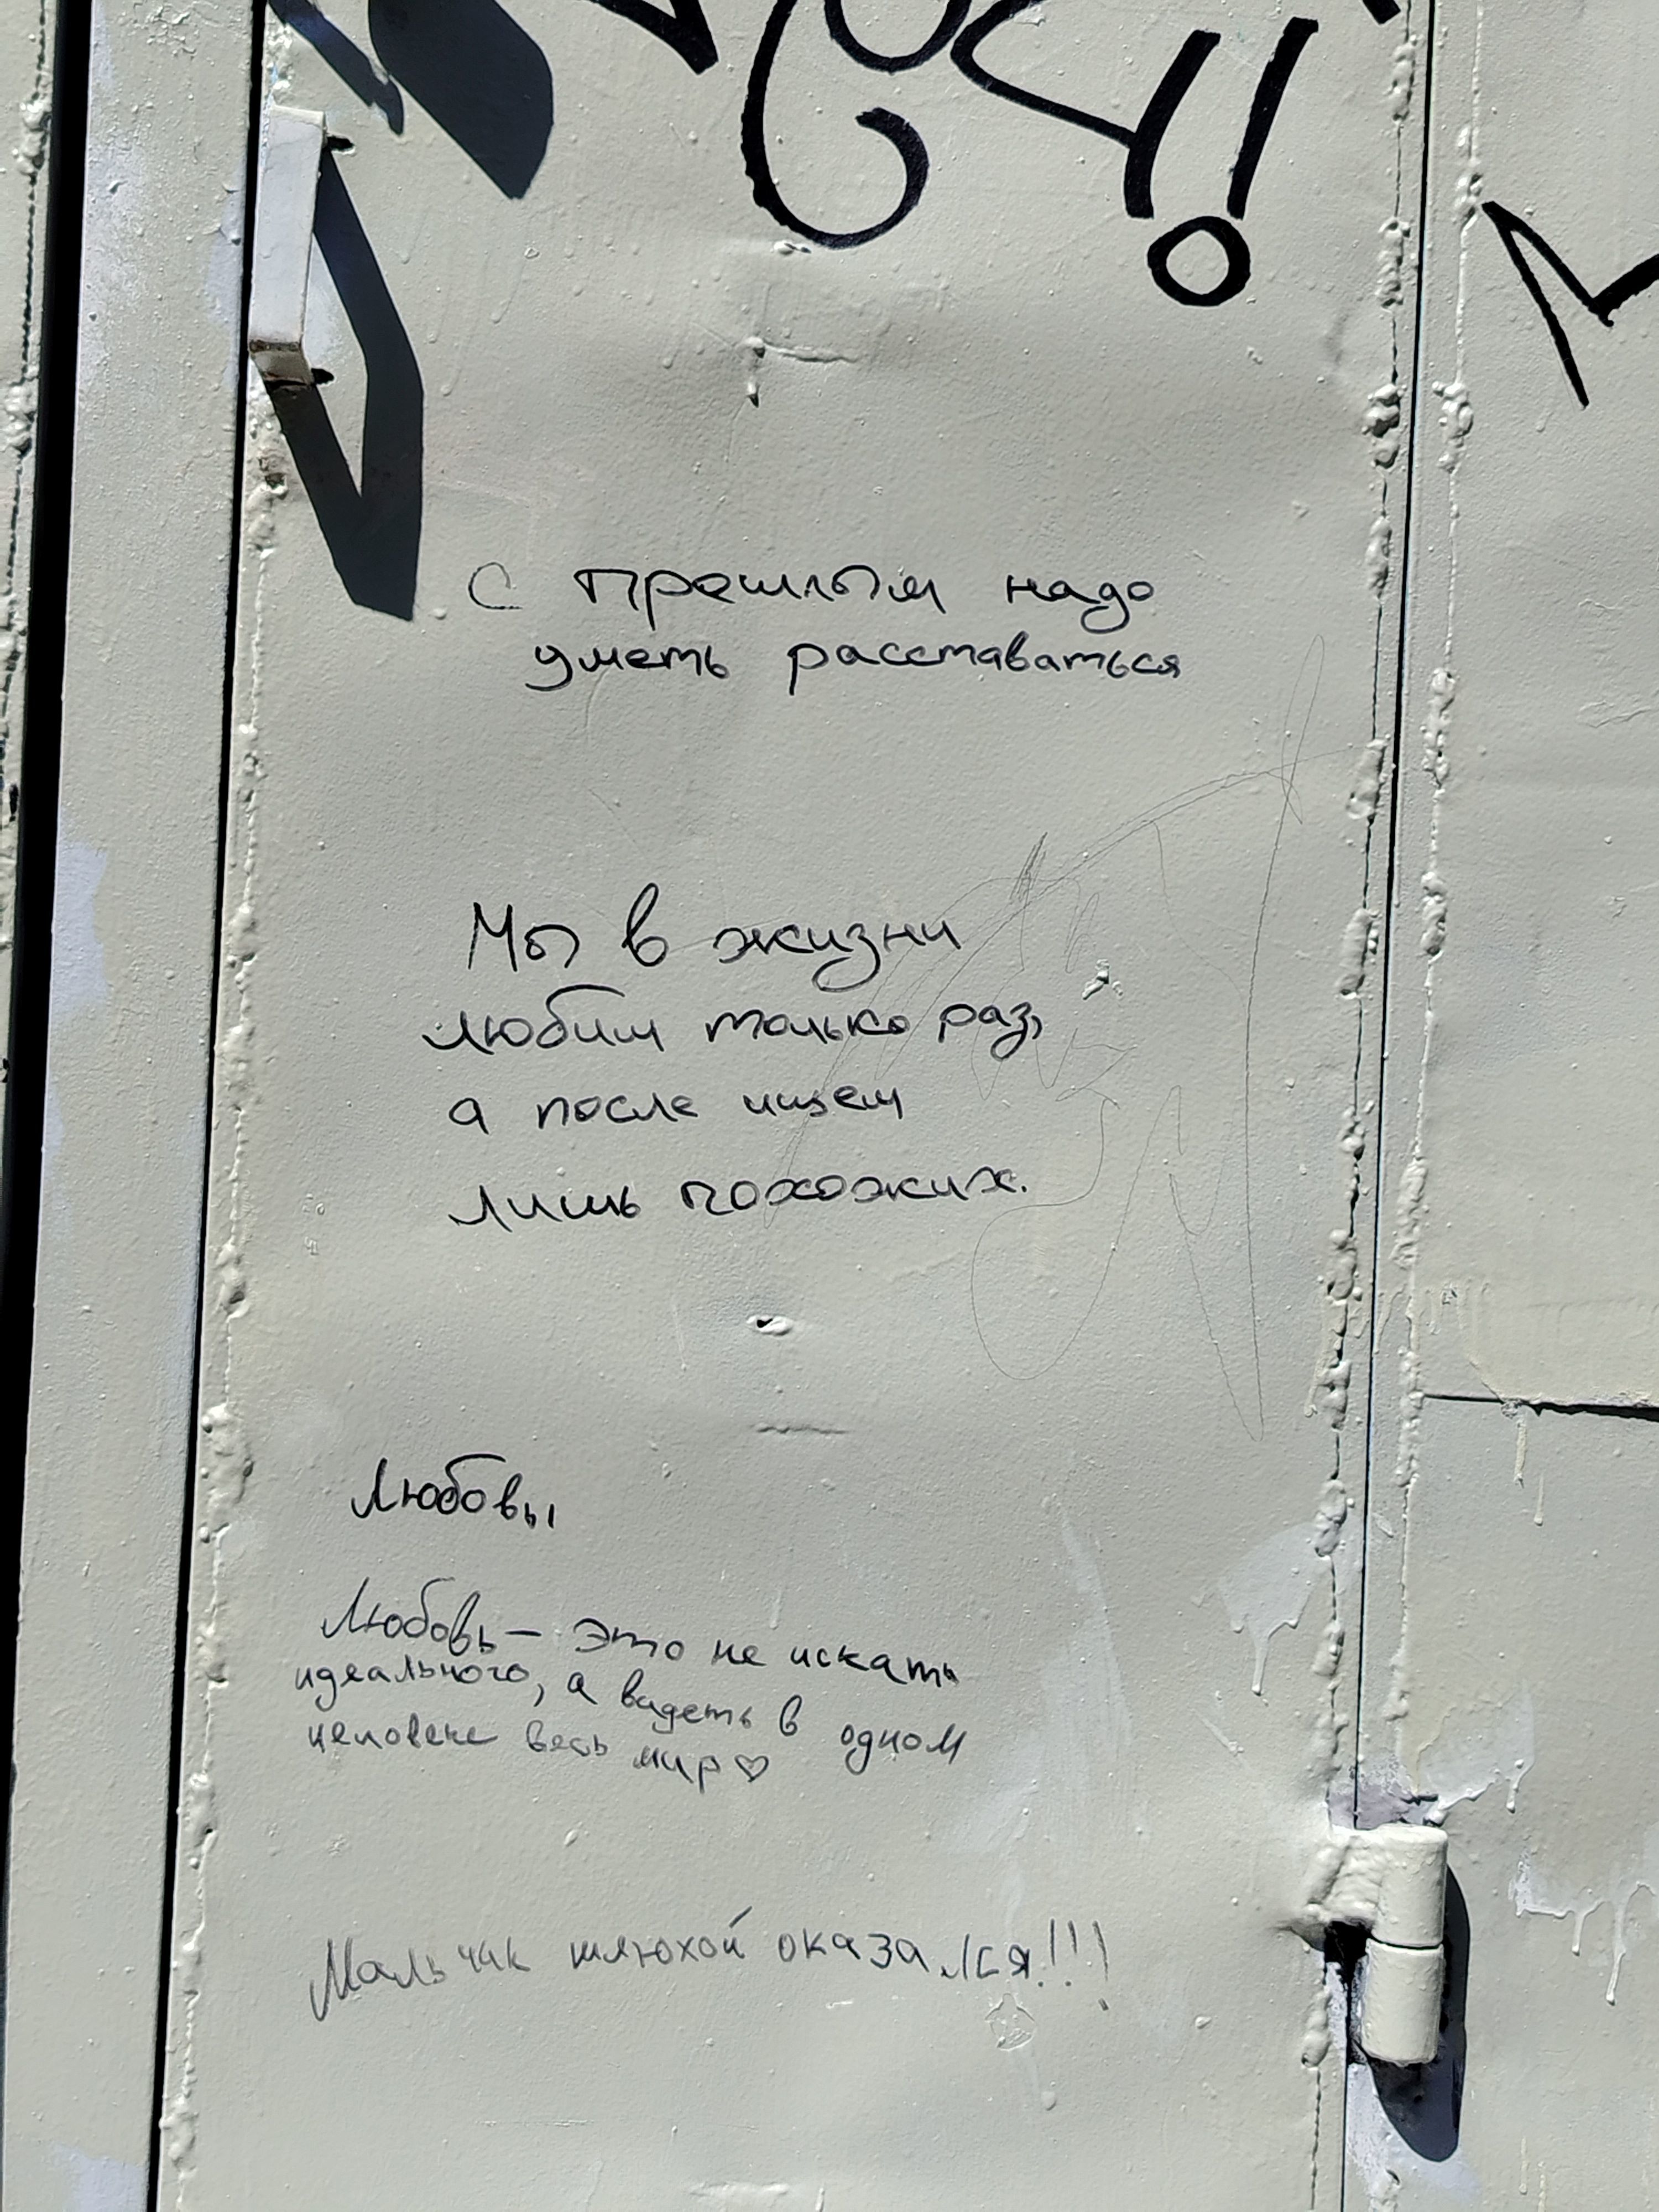 С прошлым надо
уметь расставаться
Мы в жизни
любим только раз,
а после ищем
лишь похожих.
Любовы
Любовь — это не искать
идеального, а видеть в одном
человеке весь мир♡
Мальчик шлюхой оказался!!!